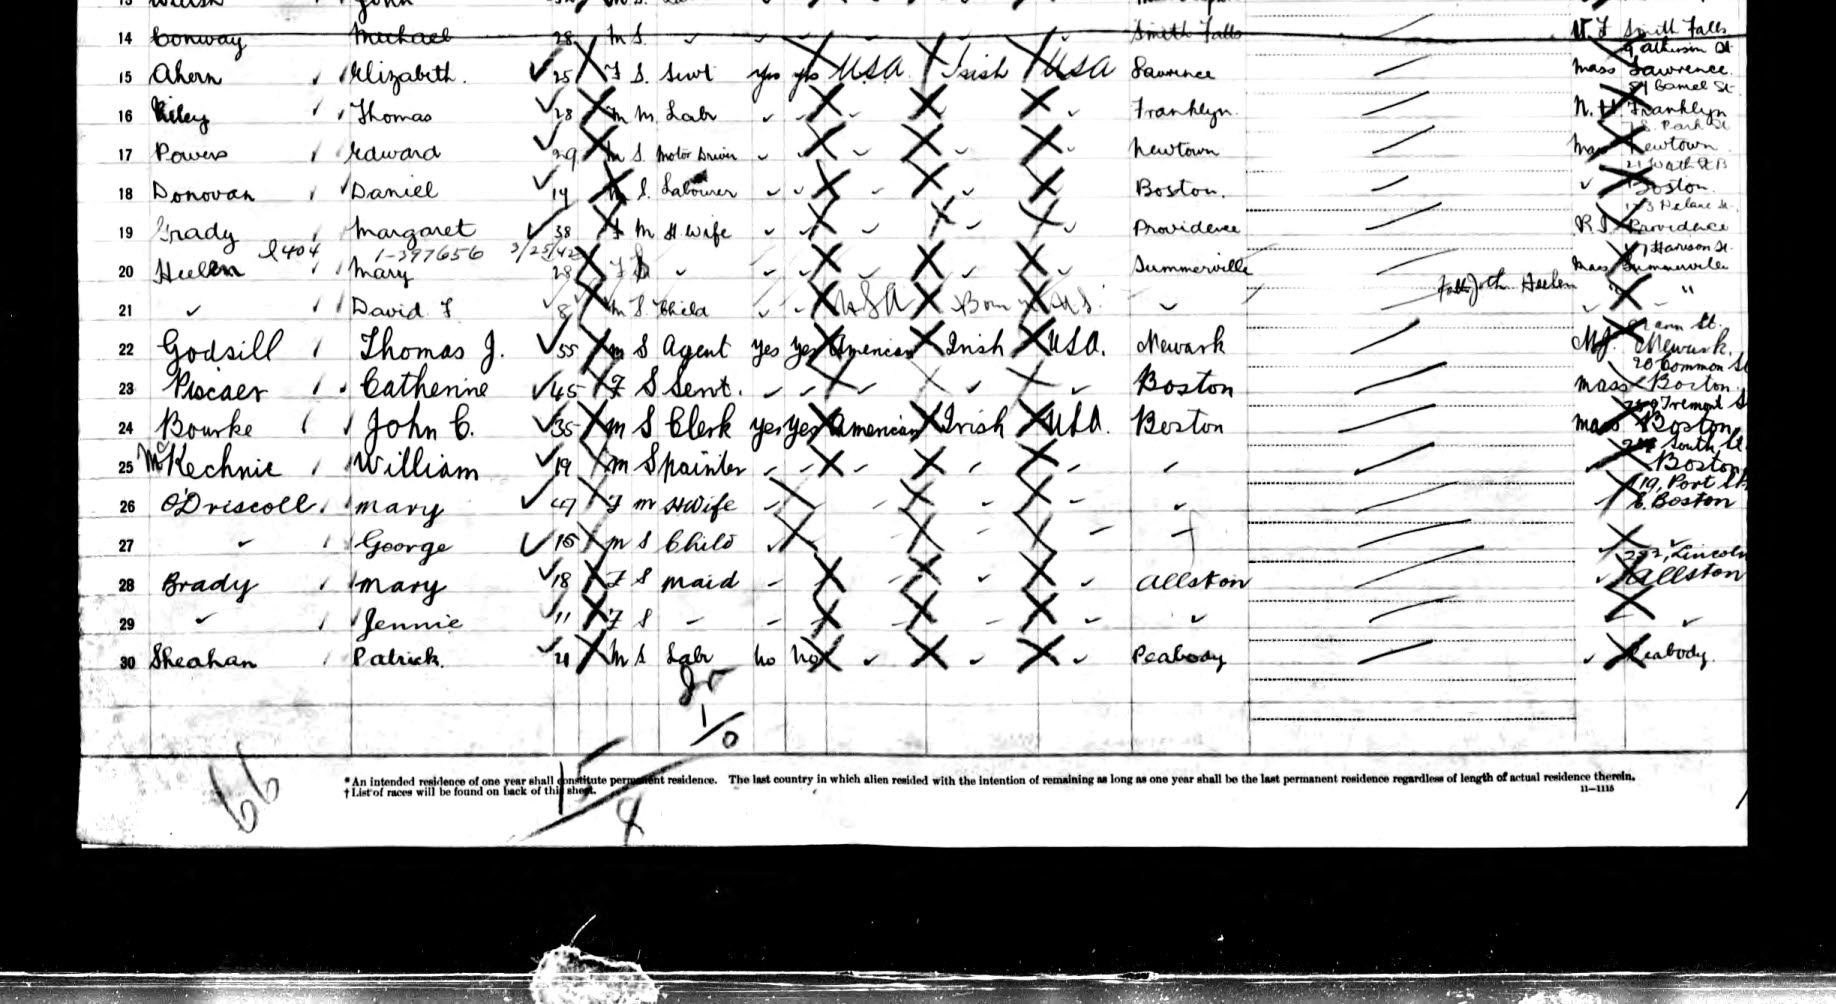 14 Conway Michael 28 M S. ✓ Smith Falls N.Y Smith Falls
15 Ahern Elizabeth. 25 F S. Servt yes yes USA Irish USA Lawrence Mass Lawrence.
16 Riley Thomas 28 M M. Labr Franklyn. N.H. Franklyn
17 Powers Edward 29 M S. Motor Driver Newtown Mass Newtown
18 Donovan Daniel 19 M S. Labourer Boston. Boston.
19 Grady Margaret 38 F M H Wife Providence R.I. Providence
2404 1-397656 3/25/42
20 Heelen Mary 28 F Summerville Mass Summerville
21 David F 8 M S Child USA Born U.S. John Heelen "
22 Godsill Thomas J. 55 M S Agent Yes Yes American Irish USA. Newark N.J. Newark.
20 Common St
23 Catherine 45 F S Servt. Boston Mass Boston.
Tremont St
24 Bourke John C. 35 M S Clerk Yes Yes American Irish USA. Boston Mass Boston
South St.
25 McKechnie William 19 M S painter Boston
119, Port St.
26 O'Driscoll. Mary 47 F M HWife E. Boston
27 George 16 M S Child
Lincoln
28 Brady Mary 18 F S Maid Allston Allston
29 Jennie 11 F S
30 Sheahan Patrick. 21 M S Labr no no Peabody Peabody.
1/0
66
*An intended residence of one year shall constitute permanent residence. The last country in which alien resided with the intention of remaining as long as one year shall be the last permanent residence regardless of length of actual residence therein.
†List of races will be found on back of this sheet. 11—1115
15/8